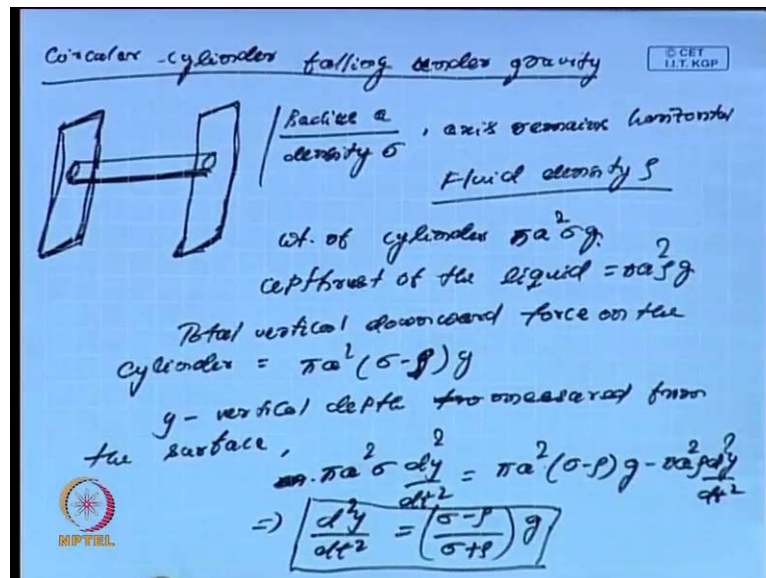 Circular cylinder falling under gravity
© CET
I.I.T. KGP
Radius a
density σ , axis remains horizontal
Fluid density ρ
wt. of cylinder πa²σg.
upthrust of the liquid = πa²ρg
Total vertical downward force on the
cylinder = πa²(σ-ρ)g
y - vertical depth measured from
the surface,
πa²σ d²y/dt² = πa²(σ-ρ)g - πa²ρ d²y/dt²
=> d²y/dt² = ((σ-ρ)/(σ+ρ)) g
NPTEL